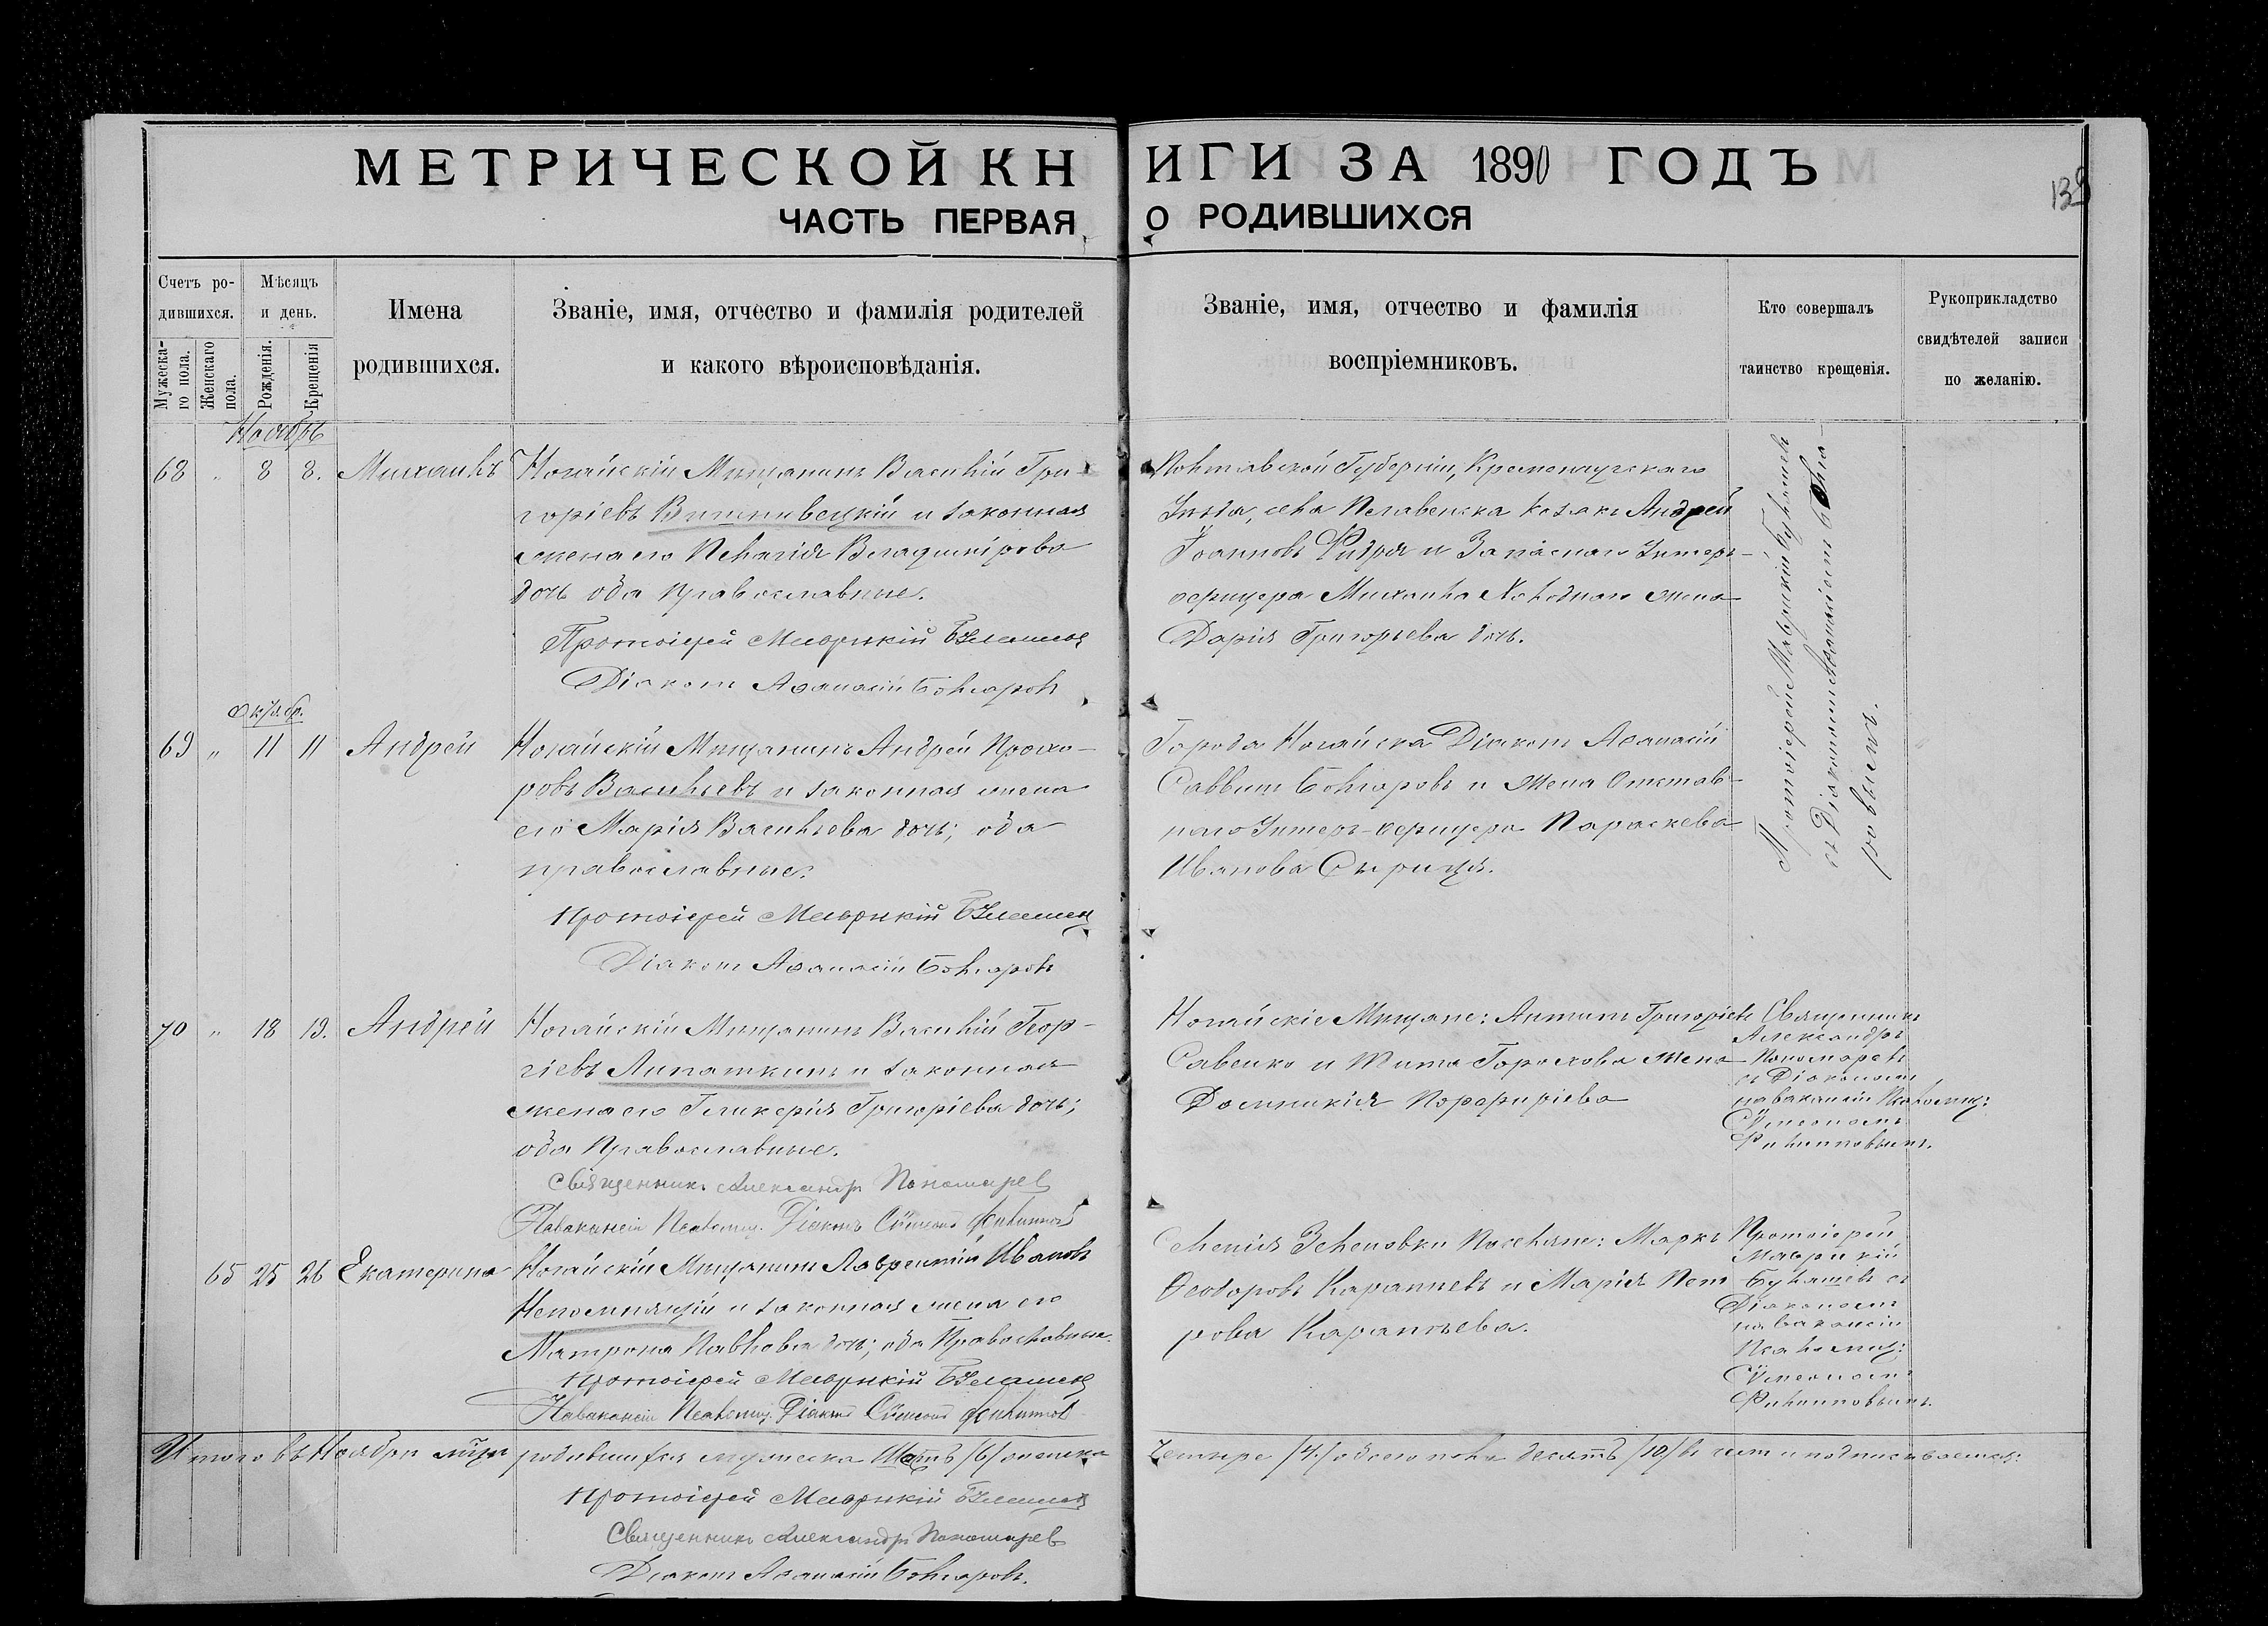 МЕТРИЧЕСКОЙ КНИГИ ЗА 1890 ГОДЪ
139
ЧАСТЬ ПЕРВАЯ О РОДИВШИХСЯ
Счетъ родившихся.
Мужескаго пола.
Женскаго пола.
Мѣсяцъ и день.
Рожденія.
Крещенія
Имена
родившихся.
Званіе, имя, отчество и фамилія родителей
и какого вѣроисповѣданія.
Званіе, имя, отчество и фамилія
воспріемниковъ.
Кто совершалъ
таинство крещенія.
Рукоприкладство
свидѣтелей записи
по желанію.
Ноябрь
68 " 8 8. Михаилъ
Ногайскій Мѣщанинъ Василій Гри-
горіевъ Вишнивецкій и законная
жена его Пелагія Владимірова
дочь оба православные.
Протоіерей Маврикій
Діаконъ Аѳанасій Болгаровъ
Полтавской Губерніи, Кременчугскаго
Уѣзда, села Андрей
Іоанновъ и Запаснаго Унтеръ-
офицера Михаила Холоднаго жена
Дарія Григорьева дочь.
Протоіерей Маврикій
съ Діакономъ Аѳанасіемъ Болга
ровымъ.
Октябр.
69 " 11 11 Андрей
Ногайскій Мѣщанинъ Андрей Прохо-
ровъ Васильевъ и законная жена
его Марія Васильева дочь; оба
православные.
Протоіерей Маврикій
Діаконъ Аѳанасій Болгаровъ
Города Ногайска Діаконъ Аѳанасій
Саввинъ Болгаровъ и жена Отстав-
наго Унтеръ-офицера Параскева
Иванова
70 " 18 19. Андрей
Ногайскій Мѣщанинъ Василій Геор-
гіевъ Липаткинъ и законная
жена его Гликерія Григоріева дочь;
оба Православные.
Священникъ Александръ Пономарев
Навакансіи Псаломщ. Діаконъ Сѵмеонъ Филиппов
Ногайскіе Мѣщане: Антипъ Григоріевъ
Савенко и Тита Горохова жена
Домникія Порфиріева
Священникъ
Александръ
Пономаревъ
съ Діакономъ
навакансіи Псаломщ:
Сѵмеономъ
Филипповымъ.
65 25 26 Екатерина
Ногайскій Мѣщанинъ Лаврентій Ивановъ
Непомнящій и законная жена его
Матрона Павлова дочь; оба Православные.
Протоіерей Маврикій
Навакансіи Псаломщ. Діаконъ Сѵмеонъ Филиппов
Селенія Зеленовки Поселяне: Маркъ
Ѳеодоровъ и Марія Пет
рова
Протоіерей
Маврикій
съ
Діакономъ
навакансіи
Псаломщ:
Сѵмеономъ
Филипповымъ.
Итого въ Ноябрѣ м-цѣ родившихся мужеска Шесть /6/ женска
Четыре /4/ обоего пола десять /10/ въ чемъ и подписываемся:
Протоіерей Маврикій
Священникъ Александръ Пономарев
Діаконъ Аѳанасій Болгаровъ.